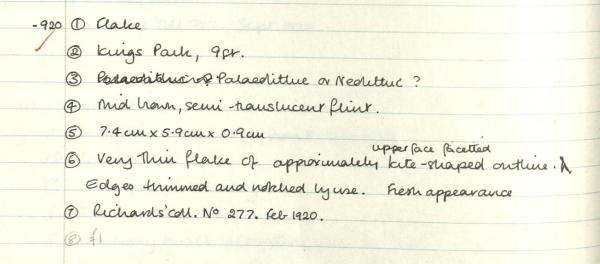 -920 ① Flake
② Kings Park, 9ft.
③ Palaeolithic or Palaeolithic or Neolithic ?
④ Mid brown, semi-translucent flint.
⑤ 7.4cm x 5.9cm x 0.9cm
upper face facetted
⑥ Very thin flake of approximately kite-shaped outline. ⋏
Edges thinned and notched by use. Fresh appearance
⑦ Richards' coll. No 277. Feb 1920.
⑧ £1